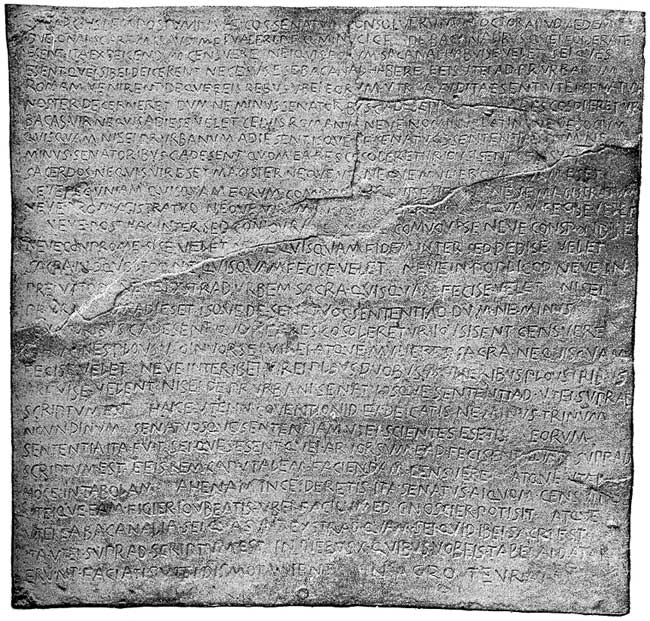 POSTVMI COS SENATVM CONSOLVERVNT N OCTOB APVD AEDEM
VALERI P F Q MINVCI C F DE BACANALIBVS QVEI FOIDERATEI
ESENT ITA EXDEICENDVM CENSVERE NEIQVIS EORVM BACANAL HABVISE VELET SEI QVES
ESENT QVEI SIBEI DEICERENT NECESVS ESE BACANAL HABERE EEIS VTEI AD PR VRBANVM
ROMAM VENIRENT DEQVE EEIS REBVS VBEI EORVM VTRA AVDITA ESENT VTEI SENATVS
NOSTER DECERNERET DVM NE MINVS SENATORBVS ADESENT A RES COSOLORETVR
BACAS VIR NEQVIS ADIESE VELET CEIVIS ROMANVS NEVE NOMINVS LATINI NEVE
QVISQVAM NISEI PR VRBANVM ADIESENT ISQVE E SENATVOS SENTENTIAD DVM NE
MINVS SENATORIBVS C ADESENT QVOM EA RES COSOLERETVR IOVSISENT
SACERDOS NEQVIS VIR ESET MAGISTER NEQVE VIR NEQVE MVLIER ESET
NEVE PECVNIAM QVISQVAM EORVM VELET NEVE MAGISTRATVM
NEVE PRO MAGISTRATVD NEQVE VIRVM QVIQVAM FECISE VELET
NEVE POST HAC INTER SED CONIOVRA COMVOVISE NEVE CONSPONDISE
NEVE CONPROMESISE VELET NEVE QVISQVAM FIDEM INTER SED DEDISE VELET
SACRA IN OQVOLTOD NE QVISQVAM FECISE VELET NEVE IN POPLICOD NEVE IN
PREIVATOD NEVE EXSTRAD VRBEM SACRA QVISQVAM FECISE VELET NISEI
PR VRBANVM ADIESET ISQVE DE SENATVOS SENTENTIAD DVM NE MINVS
SENATORIBVS C ADESENT QVOM EA RES COSOLERETVR IOVSISENT CENSVERE
HOMINES PLOVS V OINVORSEI VIREI ATQVE MVLIERES SACRA NE QVISQVAM
FECISE VELET NEVE INTER IBEI VIREI PLOVS DVOBVS MVLIERIBVS PLOVS TRIBVS
ARFVISE VELENT NISEI DE PR VRBANI SENATVOSQVE SENTENTIAD VTEI SVPRAD
SCRIPTVM EST HAICE VTEI IN COVENTIONID EXDEICATIS NE MINVS TRINVM
NOVNDINVM SENATVOSQVE SENTENTIAM VTEI SCIENTES ESETIS EORVM
SENTENTIA ITA FVIT SEI QVES ESENT QVEI ARVORSVM EAD FECISENT QVAM SVPRAD
SCRIPTVM EST EEIS REM CAPVTALEM FACIENDAM CENSVERE ATQVE VTEI
HOCE IN TABOLAM AHENAM INCEIDERETIS ITA SENATVS AIQVOM CENSVIT
VTEIQVE EAM FIGIER IOVBEATIS VBEI FACILVMED GNOSCIER POTISIT ATQVE
VTEI EA BACANALIA SEI QVA SVNT EXSTRAD QVAM SEI QVID IBEI SACRI EST
ITA VTEI SVPRAD SCRIPTVM EST IN DIEBVS X QVIBVS VOBEIS TABELAI DATAI
ERVNT FACIATIS VTEI DISMOTA SIENT IN AGRO TEVRANO